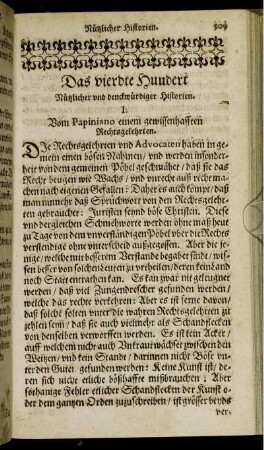 Nützlicher Historien. 509
Das vierdte Hundert
Nützlicher und denckwürdiger Historien.
I.
Vom Papiniano einem gewissenhafften
Rechtsgelehrten.
DIe Rechtsgelehrten und Advocaten haben in ge-
mein einen bösen Nahmen / und werden insonder-
heit von dem gemeinen Pöbel geschmähet / daß sie das
Recht beugen wie Wachs / und unrecht auß recht ma-
chen nach eigenen Gefallen: Daher es auch kömpt / daß
man nunmehr daß Sprüchwort von den Rechtsgeleh-
rten gebrauchet: Juristen seynd böse Christen. Diese
und dergleichen Schmeheworte werden ohne maß heut
zu Tage von dem unverständigen Pöbel uber die Rechts
verstendige ohne unterscheid außgegossen. Aber die je-
nige / welche mit besserem Verstande begabet sind / wis-
sen besser von solchen Leuten zu urtheilen / deren kein Land
noch Stadt entrathen kan. Es kan zwar nit geleugnet
werden / daß viel Zungendrescher gefunden werden /
welche das rechte verkehren: Aber es ist ferne davon /
daß solche solten unter die wahren Rechtsgelehrten zu
zehlen seyn / daß sie auch vielmehr als Schandflecken
von denselben verworffen werden. Es ist kein Acker /
auff welchem nicht auch Unkraut wächset zwischen den
Weitzen / und kein Stand / darinnen nicht Böse un-
ter den Guten gefunden werden: Keine Kunst ist / de-
ren sich nicht etliche bößhaffte mißbrauchen: Aber
sothanige Fehler etlicher Schandflecken der Kunst o-
der dem gantzen Orden zuzuschreiben / ist grösser beyds
ver-